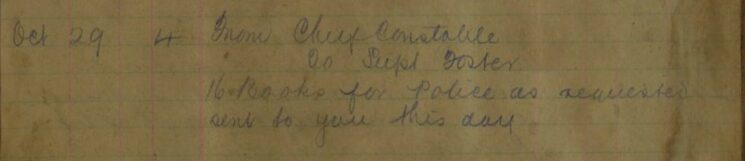 Oct 29 4 From Chief Constable
To Supt Foster
16 Books for Police as requested
sent to you this day